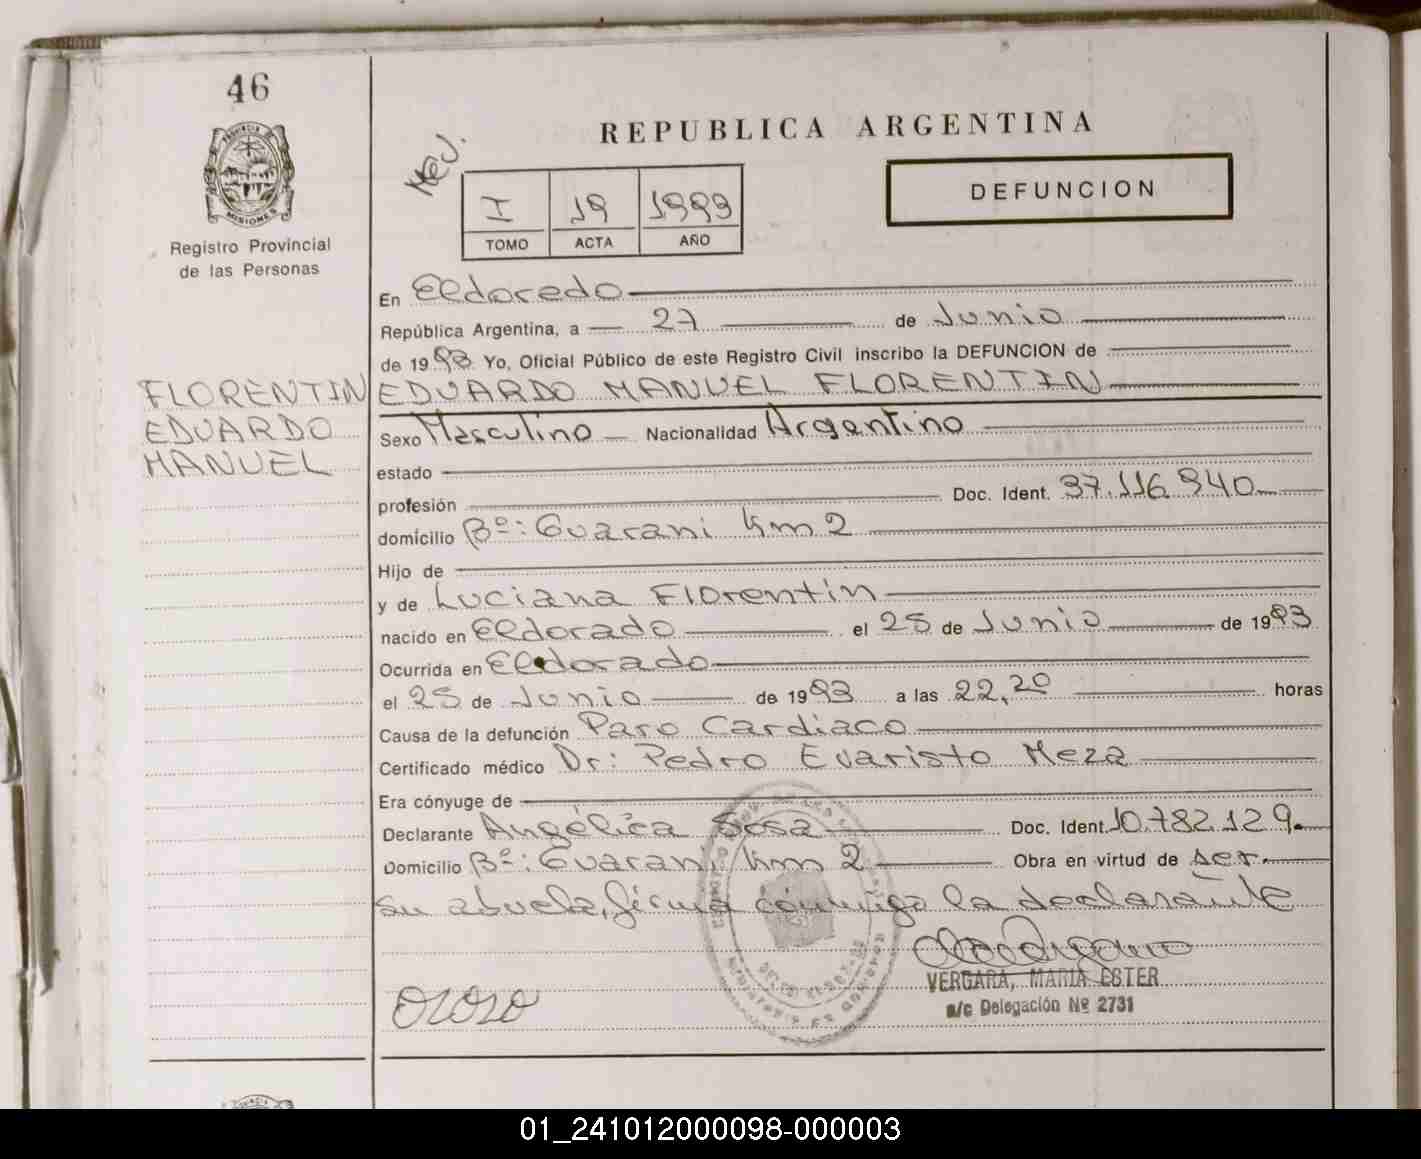 46
PROVINCIA DE
MISIONES
Registro Provincial
de las Personas
REPUBLICA ARGENTINA
DEFUNCION
I 19 1993
TOMO ACTA AÑO
En Eldoredo
República Argentina, a 27 de Junio
de 1993 Yo, Oficial Público de este Registro Civil inscribo la DEFUNCION de
FLORENTIN EDUARDO MANUEL FLORENTIN
EDUARDO
Sexo Masculino Nacionalidad Argentino
MANUEL
estado
profesión Doc. Ident. 37.116.940
domicilio Bº: Guarani Km 2
Hijo de
y de Luciana Florentin
nacido en Eldorado el 25 de Junio de 1993
Ocurrida en Eldorado
el 25 de Junio de 1993 a las 22,20 horas
Causa de la defunción Paro Cardiaco
Certificado médico Dr: Pedro Evaristo Meza
Era cónyuge de
Declarante Angélica Sosa Doc. Ident. 10.782.129
Domicilio Bº: Guarani Km 2 Obra en virtud de ser
su abuela, firma conmigo la declarante
VERGARA, MARIA ESTER
a/c Delegación Nº 2731
01_241012000098-000003